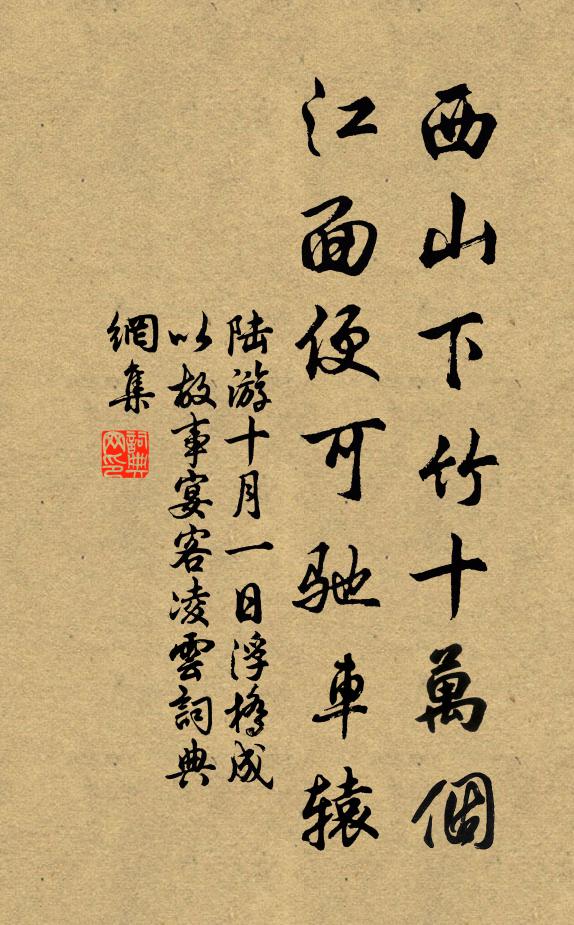 西山下竹十萬個
江面便可馳車辕
陆游十月一日浮橋成
以故事宴客凌雲詞典
網集
詞典
网印